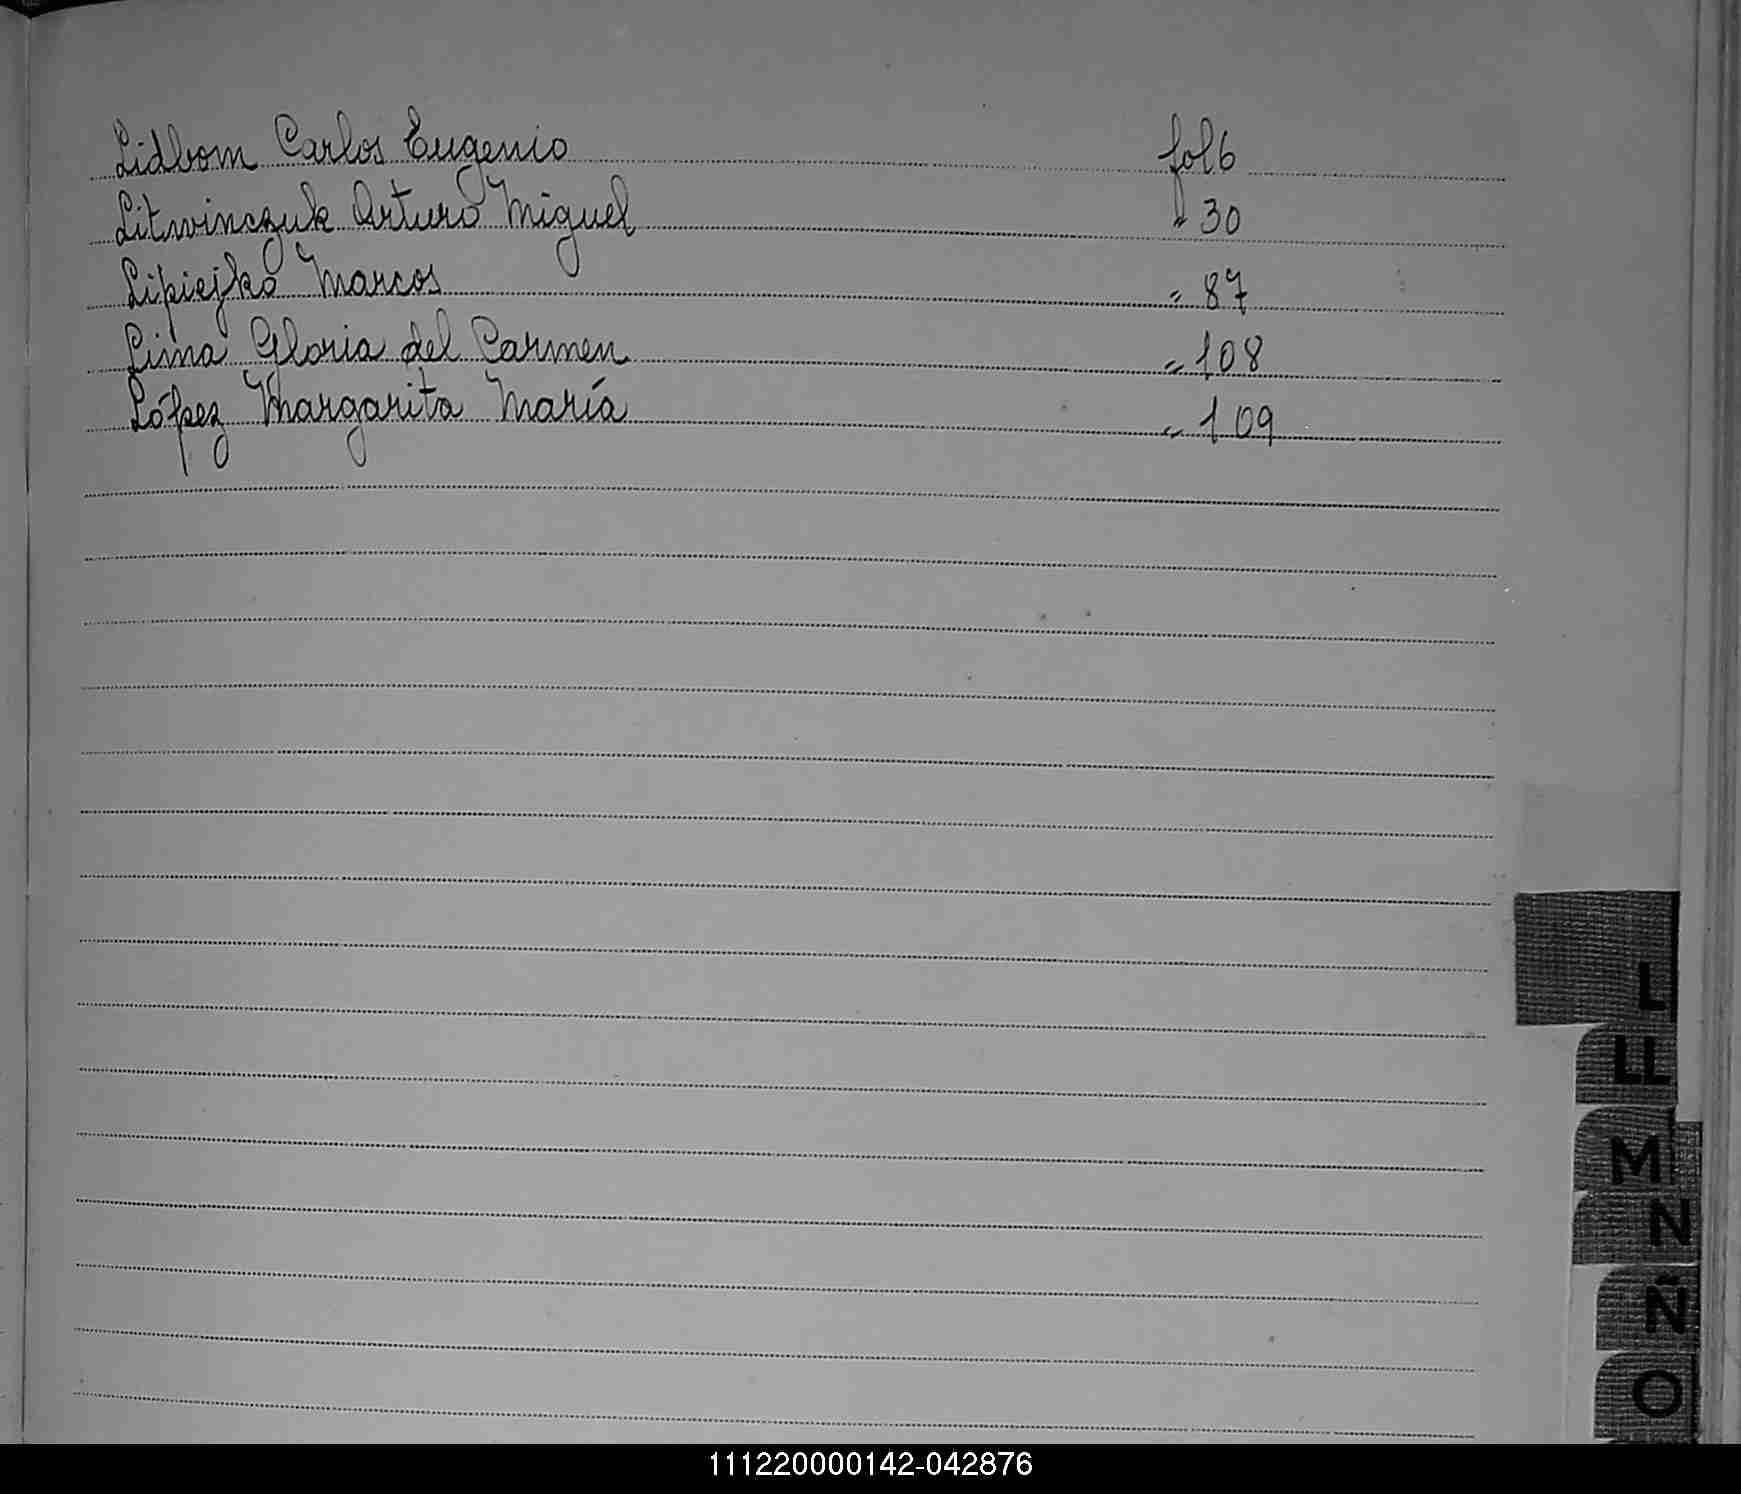 Lidbom Carlos Eugenio fol 6
Litwinczuk Arturo Miguel " 30
Lipiejko Marcos = 87
Lima Gloria del Carmen = 108
López Margarita María = 109
L
LL
M
N
Ñ
O
111220000142-042876